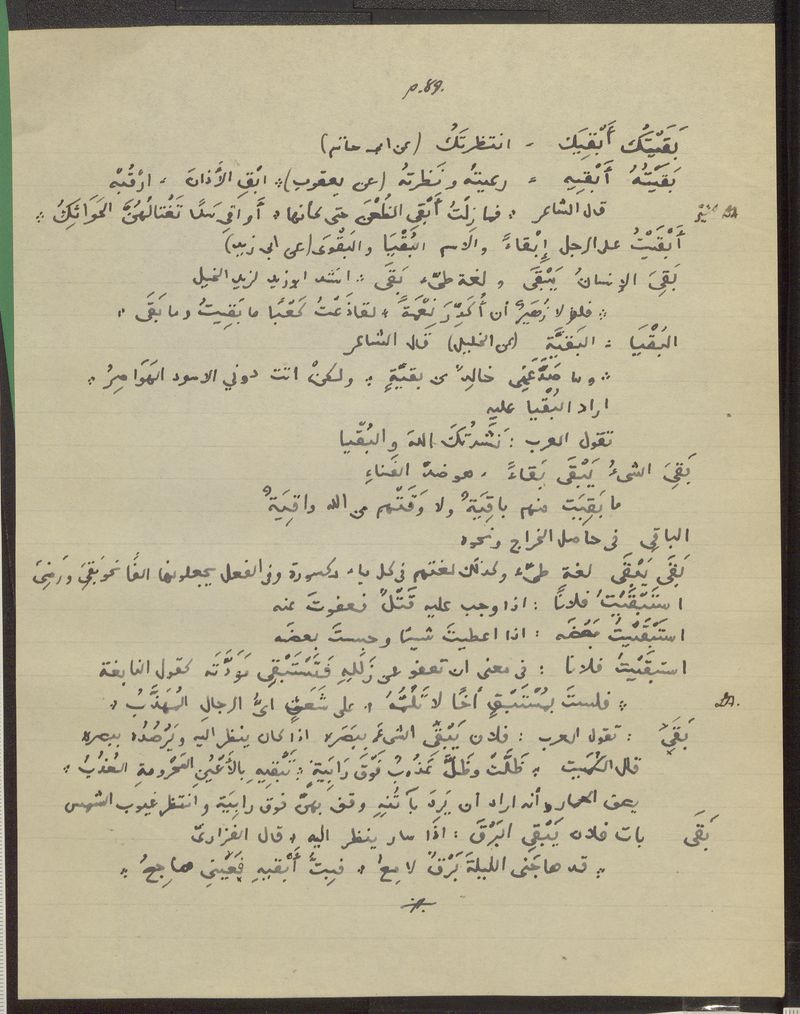 p.89.
بَقَيْتُكَ أَبْقِيكَ - انتظرتُكَ (عن ابي حاتم)
بَقَيْتُهُ أَبْقِيهِ = رعيتهُ ونَظرتهُ (عن يعقوب) ⁘ ابْقِ الأَذانَ ، ارْقُبْهُ
قال الشاعر ⁘ فما زِلْتُ أَبْقِي الظُعْنَ حتى كأنها ⁘ أَواقي سَدًا تَغْتالُهُنَّ الحَوَائِكُ ⁘
أَبْقَيْتُ على الرجل إِبْقاءً والاسم البُقْيَا والبَقْوَى (عن ابي زيد)
بَقِيَ الإنسانُ يَبْقَى ولغة طيّء بَقَى ⁘ انشد ابو زيد لزيد الخيل
⁘ فلولا زُهَيرٌ أن أُكَدِّرَ نِعْمَةً ⁘ لقاذَعْتُ كَعْبًا ما بَقِيتُ وما بَقَى ⁘
البُقْيَا = البَقيَّةِ (عن الخليل) قال الشاعر
⁘ وما صَدَّ عَنِّي خالِدٌ من بقيَّةٍ ⁘ ولكنْ اتت دوني الاسود الهَوَاصِرُ ⁘
اراد البُقْيا عليه
تقول العرب : نَشَدْتُكَ اللهَ والبُقْيا
بَقِيَ الشيءُ يَبْقَى بَقاءً ، هو ضدّ الفَناءِ
ما بَقِيَت منهم باقِيَةٌ ولا وَقَتْهم من الله واقِيَةٌ
الباقي في حاصل الخراج ونحوه
بَقَى يَبْقَى لغة طيّء وكذلك لغتهم في كل ياء مكسورة وفي الفعل يجعلونها الفًا نحو بَقِيَ ورَضِيَ
استَبْقَيْتُ فلانًا : اذا وجب عليه قَتْلٌ فعفوتَ عنه
استَبْقَيْتُ بَعْضَه : اذا اعطيتَ شيئًا وحبستَ بعضَه
استبقَيْتُ فلانا : في معنى ان تعفو عن زَلَلِهِ فَتَسْتَبْقِي مَوَدَّتَه كقول النابغة
⁘ فلستَ بمُسْتَبْقٍ أخًا لا تَلُمُّهُ ⁘ على شَعَثٍ ايُّ الرجالِ المُهَذَّبُ ⁘
بَقَى : تقول العرب : فلان يَبْقي الشيءَ بِبَصَره اذا كان ينظر اليه ويَرْصُدُه ببصره
قال الكُمَيت ⁘ ظَلَّتْ وظَلَّ عَذُوبًا فَوْقَ رَابِيَةٍ ⁘ تَبْقِيهِ بالأَعْيُنِ المَحْرومةِ العُذُبُ ⁘
يصف الحمار وأنه اراد ان يَرِدَ بأُتُنِهِ وقف بهنّ فوق رابِيَة وانتظر غيوب الشمس
بَقَى بات فلان يَبْقي البَرْقَ : اذا صار ينظر اليه ⁘ قال الفزاريّ
⁘ قد هاجَني الليلةَ بَرْقٌ لامِعُ ⁘ فبِتُّ أَبْقيهِ فعَيْني هاجِعُ ⁘